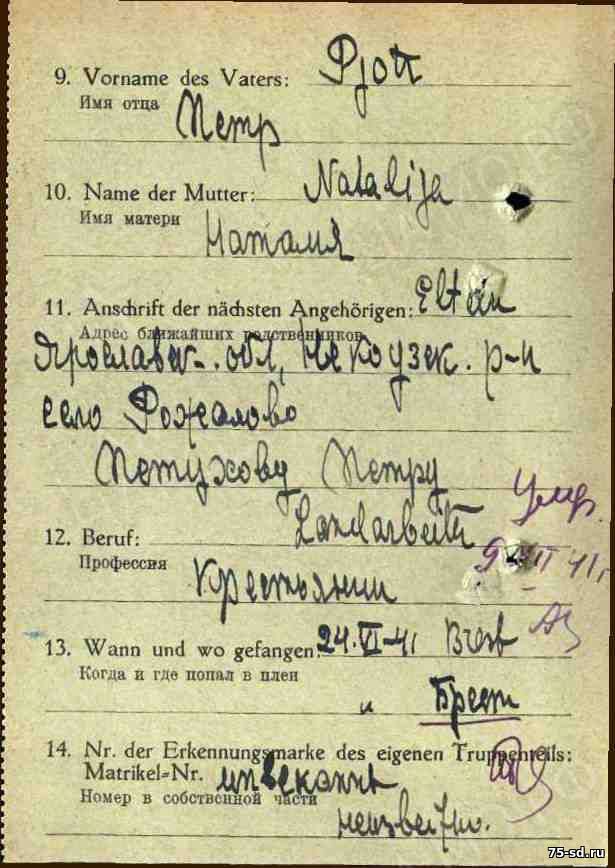 9. Vorname des Vaters: Pjotr
Имя отца
Петр
10. Name der Mutter: Natalija
Имя матери
Наталия
11. Anschrift der nächsten Angehörigen: Eltern
Адрес ближайших родственников
Ярославск. обл, Некоузск. р-н
село Рожалово
Петухову Петру
Умер.
12. Beruf: Landarbeiter
Профессия
41 г
Крестьянин
13. Wann und wo gefangen: 24.VI-41 Brest
Когда и где попал в плен
и Брест
14. Nr. der Erkennungsmarke des eigenen Truppenteils:
Matrikel-Nr. unbekannt
Номер в собственной части
неизвестно.
75-sd.ru